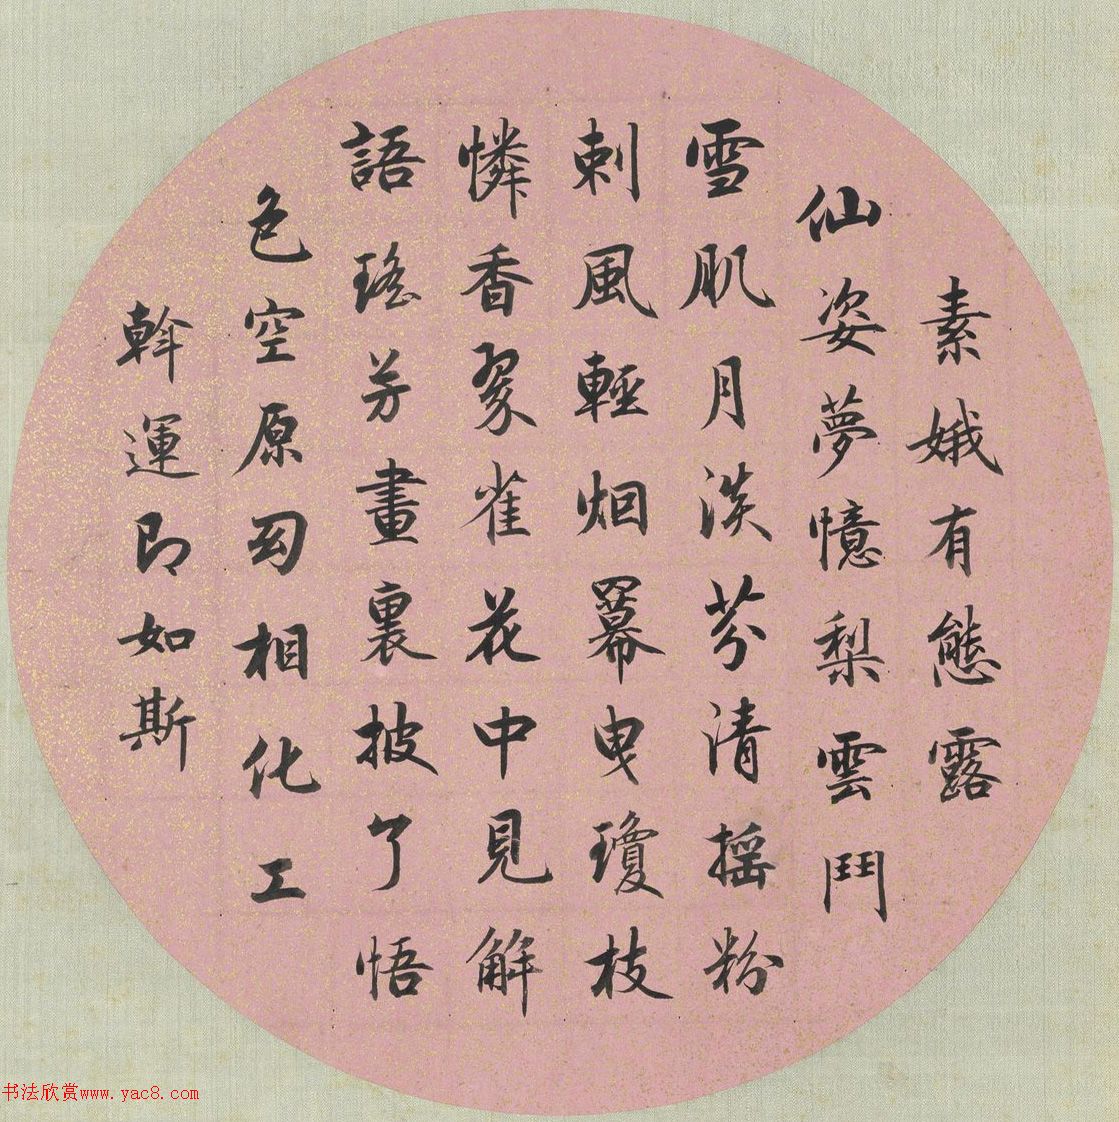 素娥有態露
仙姿夢憶梨雲鬥
雪肌月淡芬清摇粉
刺風輕烟羃曳瓊枝
憐香翠雀花中見解
語瑤芳畫裏披了悟
色空原幻相化工
斡運即如斯
书法欣赏www.yac8.com